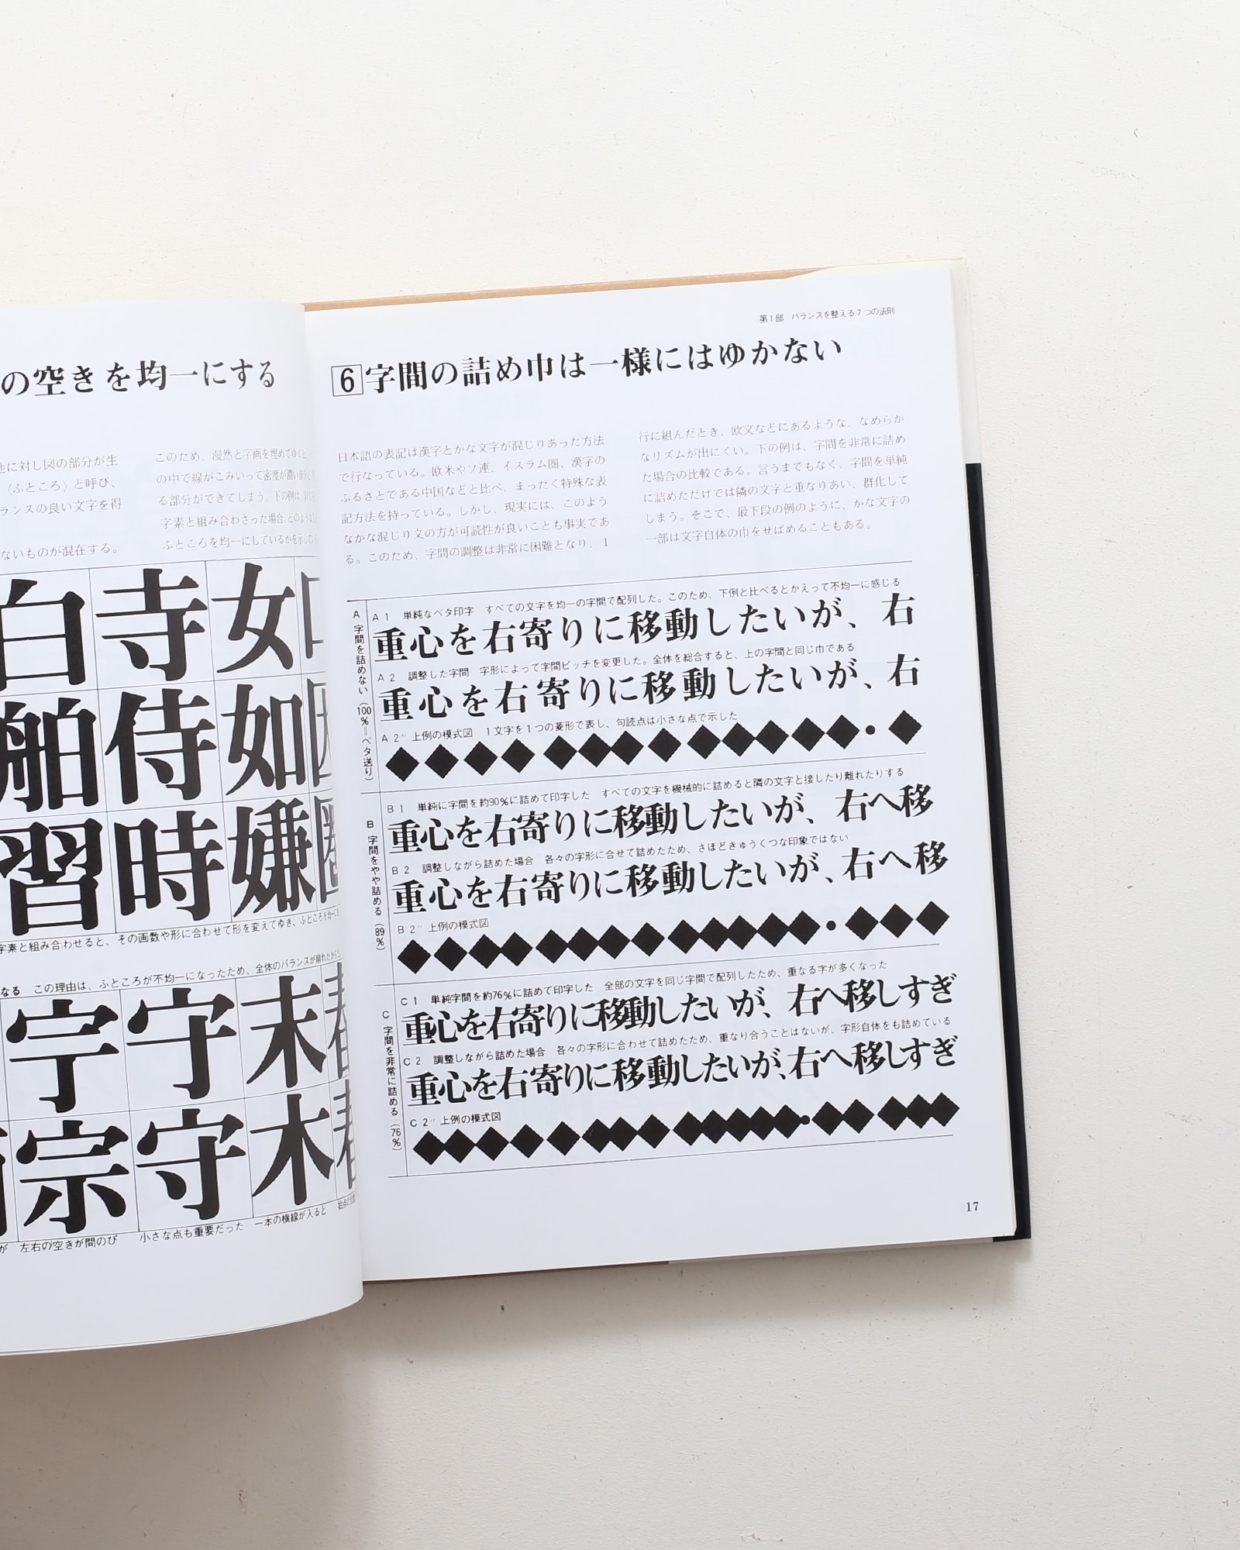 の空きを均一にする
地に対し図の部分が生
〈ふところ〉と呼び、
ランスの良い文字を得
ないものが混在する。
このため、漫然と字画を埋めてゆくと
の中で線がこみいって密度が濃い
る部分ができてしまう。下の例は
字素と組み合わさった場合、どのように
ふところを均一にしているかを示した
白 寺 女
舶 侍 如
習 時 嫌
字素と組み合わせると、その画数や形に合わせて形を変えてゆき、ふところを
なる この理由は、ふところが不均一になったため、全体のバランスが崩れた
守 末 春
宗 守 木 春
が 左右の空きが間のび 小さな点も重要だった 一本の横線が入ると
第1部 バランスを整える7つの法則
6 字間の詰め巾は一様にはゆかない
日本語の表記は漢字とかな文字が混じりあった方法
で行なっている。欧米やソ連、イスラム圏、漢字の
ふるさとである中国などと比べ、まったく特殊な表
記方法を持っている。しかし、現実には、このよう
なかな混じり文の方が可読性が良いことも事実であ
る。このため、字間の調整は非常に困難となり、1
行に組んだとき、欧文などにあるような、なめらか
なリズムが出にくい。下の例は、字間を非常に詰め
た場合の比較である。言うまでもなく、字間を単純
に詰めただけでは隣の文字と重なりあい、群化して
しまう。そこで、最下段の例のように、かな文字の
一部は文字自体の巾をせばめることもある。
A 字間を詰めない(100%＝ベタ送り)
A1 単純なベタ印字 すべての文字を均一の字間で配列した。このため、下例と比べるとかえって不均一に感じる
重心を右寄りに移動したいが、右
A2 調整した字間 字形によって字間ピッチを変更した。全体を総合すると、上の字間と同じ巾である
重心を右寄りに移動したいが、右
A2′ 上例の模式図 1文字を1つの菱形で表し、句読点は小さな点で示した
B 字間をやや詰める(89%)
B1 単純に字間を約90%に詰めて印字した すべての文字を機械的に詰めると隣の文字と接したり離れたりする
重心を右寄りに移動したいが、右へ移
B2 調整しながら詰めた場合 各々の字形に合せて詰めたため、さほどきゅうくつな印象ではない
重心を右寄りに移動したいが、右へ移
B2′ 上例の模式図
C 字間を非常に詰める(76%)
C1 単純字間を約76%に詰めて印字した 全部の文字を同じ字間で配列したため、重なる字が多くなった
重心を右寄りに移動したいが、右へ移しすぎ
C2 調整しながら詰めた場合 各々の字形に合わせて詰めたため、重なり合うことはないが、字形自体をも詰めている
重心を右寄りに移動したいが、右へ移しすぎ
C2′ 上例の模式図
17